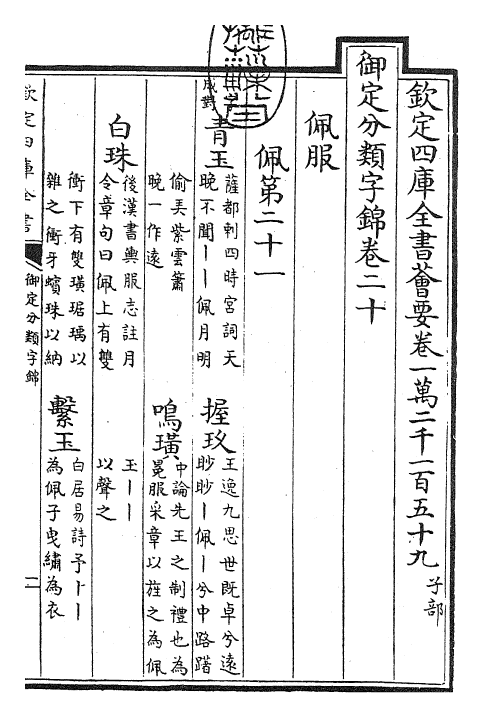 欽定四庫全書薈要卷一萬二千一百五十九 子部
御定分類字錦卷二十
佩服
佩第二十一
成對
青玉
薩都剌四時宮詞天
晚不聞丨丨佩月明
偷弄紫雲簫
晚一作遠
握玖
王逸九思世既卓兮遠
眇眇丨佩丨兮中路躇
鳴璜
中論先王之制禮也為
冕服采章以旌之為佩
玉丨丨
以聲之
白珠
後漢書輿服志註月
令章句曰佩上有雙
衡下有雙璜琚瑀以
雜之衝牙蠙珠以納
繫玉
白居易詩予卜丨丨
為佩子曳繡為衣
欽定四庫全書
御定分類字錦
一